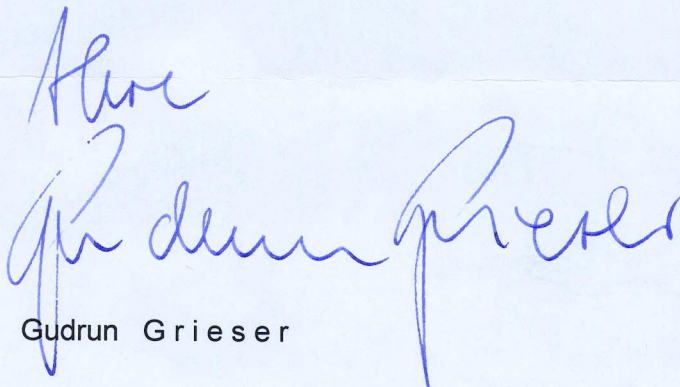 Ihre
Gudrun Grieser
Gudrun Grieser